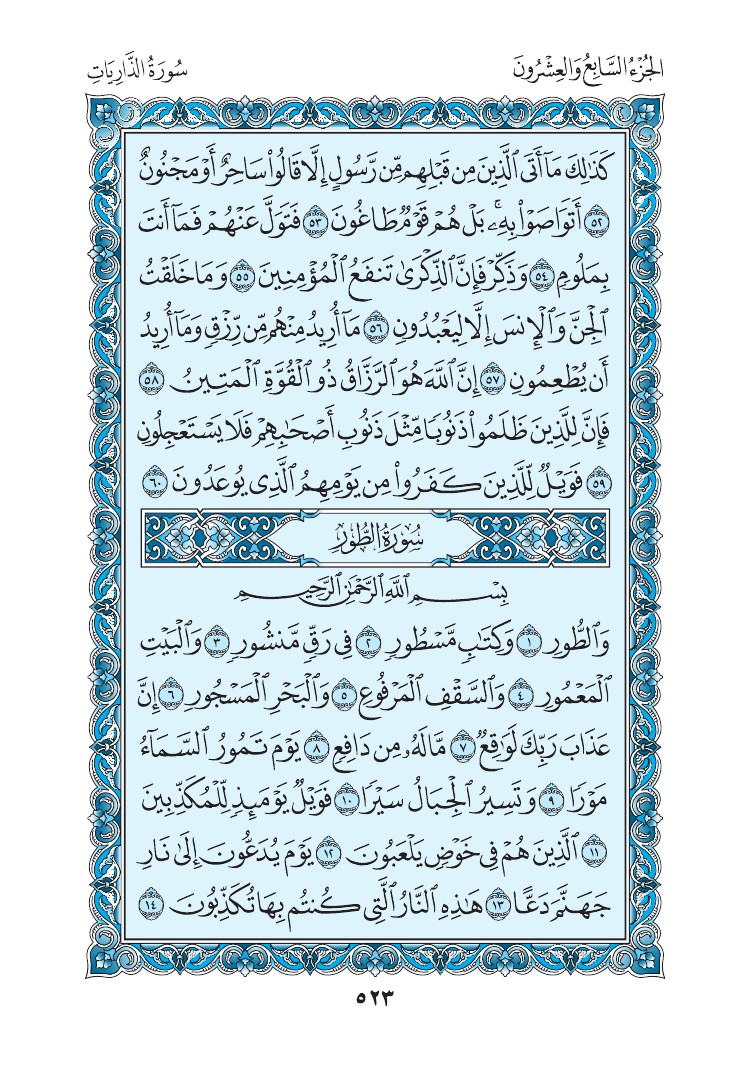 الجُزْءُ السَّابِعُ وَالعِشْرُونَ
سُورَةُ الذَّارِيَاتِ
كَذَٰلِكَ مَآ أَتَى ٱلَّذِينَ مِن قَبْلِهِم مِّن رَّسُولٍ إِلَّا قَالُوا۟ سَاحِرٌ أَوْ مَجْنُونٌ
٥٢ أَتَوَاصَوْا۟ بِهِۦ ۚ بَلْ هُمْ قَوْمٌ طَاغُونَ ٥٣ فَتَوَلَّ عَنْهُمْ فَمَآ أَنتَ
بِمَلُومٍ ٥٤ وَذَكِّرْ فَإِنَّ ٱلذِّكْرَىٰ تَنفَعُ ٱلْمُؤْمِنِينَ ٥٥ وَمَا خَلَقْتُ
ٱلْجِنَّ وَٱلْإِنسَ إِلَّا لِيَعْبُدُونِ ٥٦ مَآ أُرِيدُ مِنْهُم مِّن رِّزْقٍ وَمَآ أُرِيدُ
أَن يُطْعِمُونِ ٥٧ إِنَّ ٱللَّهَ هُوَ ٱلرَّزَّاقُ ذُو ٱلْقُوَّةِ ٱلْمَتِينُ ٥٨
فَإِنَّ لِلَّذِينَ ظَلَمُوا۟ ذَنُوبًا مِّثْلَ ذَنُوبِ أَصْحَٰبِهِمْ فَلَا يَسْتَعْجِلُونِ
٥٩ فَوَيْلٌ لِّلَّذِينَ كَفَرُوا۟ مِن يَوْمِهِمُ ٱلَّذِى يُوعَدُونَ ٦٠
سُورَةُ الطُّورِ
بِسْمِ ٱللَّهِ ٱلرَّحْمَٰنِ ٱلرَّحِيمِ
وَٱلطُّورِ ١ وَكِتَٰبٍ مَّسْطُورٍ ٢ فِى رَقٍّ مَّنشُورٍ ٣ وَٱلْبَيْتِ
ٱلْمَعْمُورِ ٤ وَٱلسَّقْفِ ٱلْمَرْفُوعِ ٥ وَٱلْبَحْرِ ٱلْمَسْجُورِ ٦ إِنَّ
عَذَابَ رَبِّكَ لَوَٰقِعٌ ٧ مَّا لَهُۥ مِن دَافِعٍ ٨ يَوْمَ تَمُورُ ٱلسَّمَآءُ
مَوْرًا ٩ وَتَسِيرُ ٱلْجِبَالُ سَيْرًا ١٠ فَوَيْلٌ يَوْمَئِذٍ لِّلْمُكَذِّبِينَ
١١ ٱلَّذِينَ هُمْ فِى خَوْضٍ يَلْعَبُونَ ١٢ يَوْمَ يُدَعُّونَ إِلَىٰ نَارِ
جَهَنَّمَ دَعًّا ١٣ هَٰذِهِ ٱلنَّارُ ٱلَّتِى كُنتُم بِهَا تُكَذِّبُونَ ١٤
٥٢٣